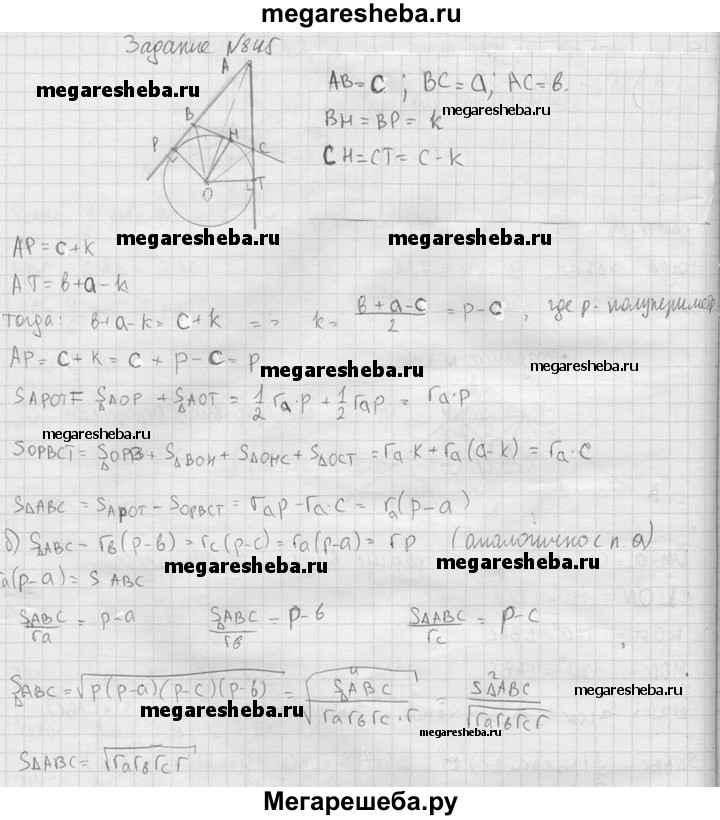 megaresheba.ru
Задание №845
A
B
P
H
C
T
O
AB = c ; BC = a; AC = в.
BH = BP = k
CH = CT = c - k
megaresheba.ru
megaresheba.ru
megaresheba.ru
megaresheba.ru megaresheba.ru
AP = c + k
AT = в + a - k
тогда: в + a - k = c + k => k = (в + a - c)/2 = p - c , где p - полупериметр
AP = c + k = c + p - c = p
megaresheba.ru
megaresheba.ru
SAPOT = S△AOP + S△AOT = 1/2 ra·p + 1/2 rap = ra·p
megaresheba.ru
SOPBCT = S△OPB + S△BOH + S△OHC + S△OCT = ra·k + ra(a-k) = ra·c
S△ABC = SAPOT - SOPBCT = rap - ra·c = ra(p-a)
б) S△ABC = rв(p-в) = rc(p-c) = ra(p-a) = rp (аналогично с п. a)
megaresheba.ru megaresheba.ru
ra(p-a) = S ABC
S△ABC/ra = p-a S△ABC/rв = p-в S△ABC/rc = p-c
S△ABC = √(p(p-a)(p-c)(p-в)) = √(S△ABC⁴/(rarвrc·r)) = S△ABC²/√(rarвrcr)
megaresheba.ru
megaresheba.ru
megaresheba.ru
S△ABC = √(rarвrcr)
Мегарешеба.ру